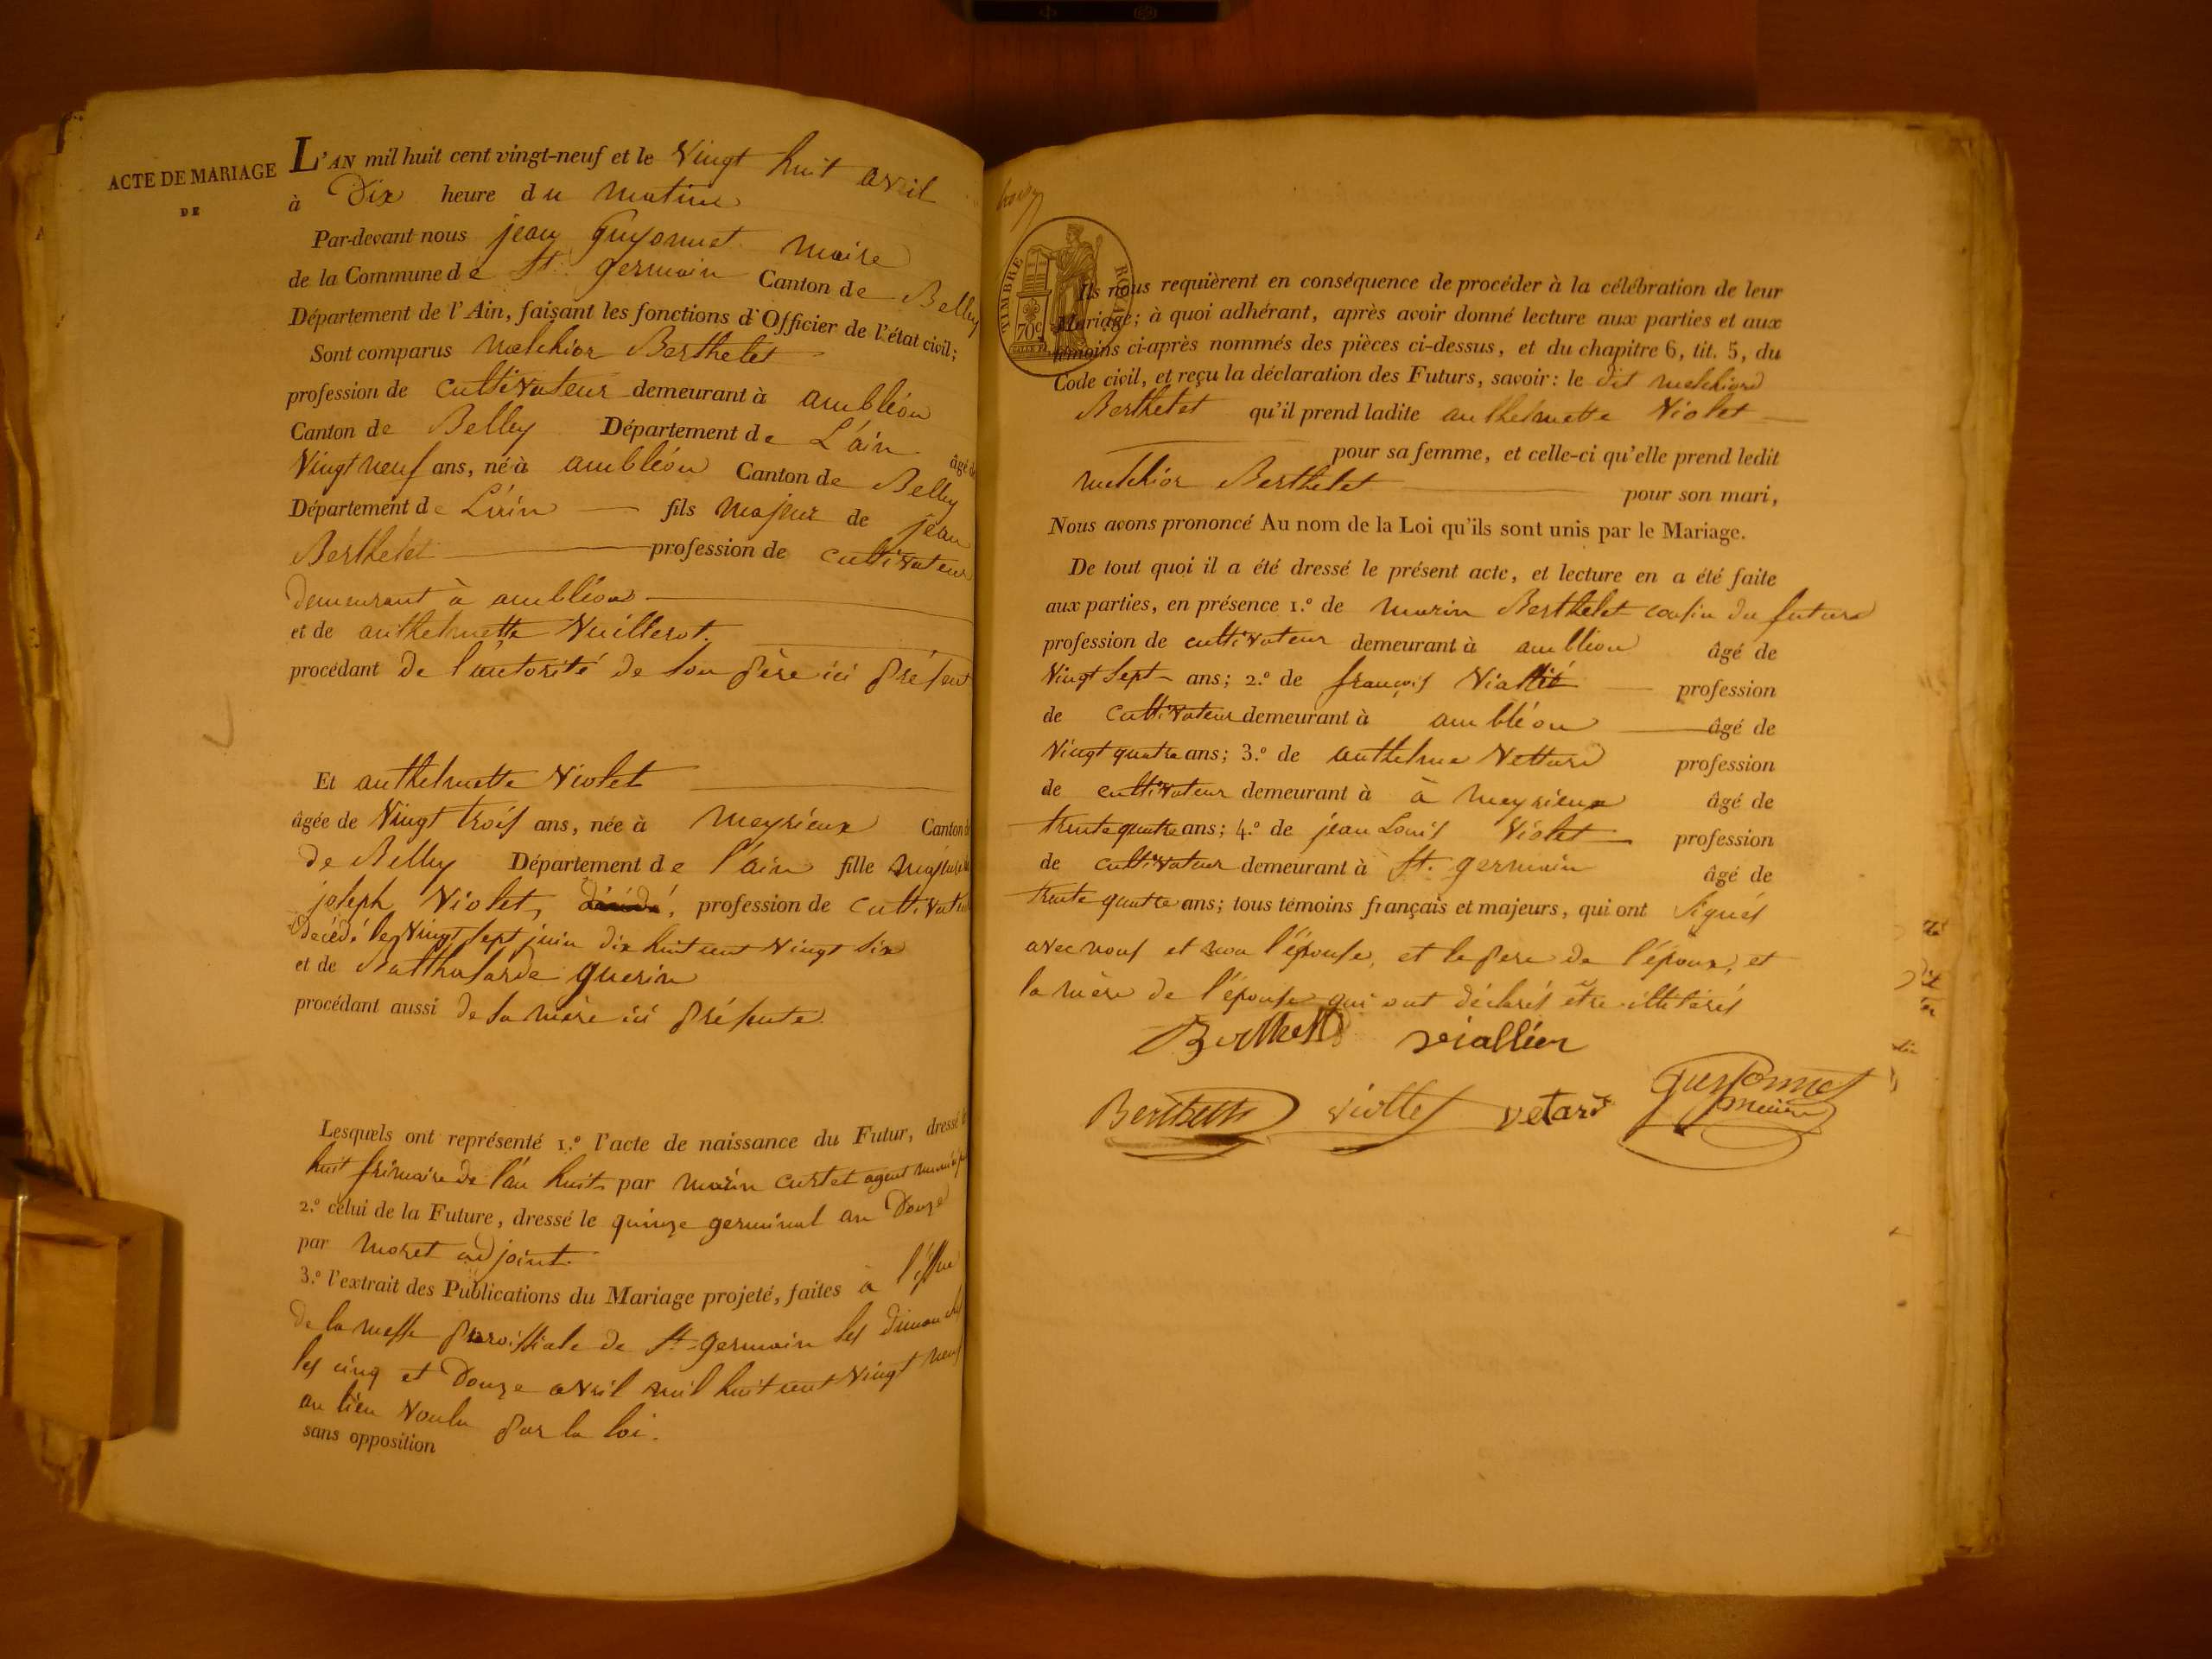 ACTE DE MARIAGE
DE
L'AN mil huit cent vingt-neuf et le Vingt huit avril
à Dix heure du matin
Par-devant nous jean Guyonnet maire
de la Commune de St. germain Canton de Belley
Département de l'Ain, faisant les fonctions d'Officier de l'état civil;
Sont comparus melchior Berthelet
profession de cultivateur demeurant à ambléon
Canton de Belley Département de L'ain âgé de
Vingt neuf ans, né à ambléon Canton de Belley
Département de L'ain fils majeur de jean
Berthelet profession de cultivateur
demeurant à ambléon
et de anthelmette Vuillerot.
procédant de l'autorité de son père ici présent
Et anthelmette Violet
âgée de Vingt trois ans, née à meyrieux Canton de
de Belley Département de l'ain fille majeure de
joseph Violet, profession de cultivateur
décédé le Vingt sept juin dix huit cent vingt six
et de Balthasarde guerin
procédant aussi de sa mère ici présente
Lesquels ont représenté 1.º l'acte de naissance du Futur, dressé le
huit frimaire de l'an huit par marin curtet agent municipal
2.º celui de la Future, dressé le quinze germinal an Douze
par moret adjoint.
3.º l'extrait des Publications du Mariage projeté, faites à l'issue
de la messe paroissiale de St. germain les dimanches
les cinq et Douze avril mil huit cent vingt neuf
au lieu voulu par la loi.
sans opposition
TIMBRE ROYAL
70c
Ils nous requièrent en conséquence de procéder à la célébration de leur
Mariage; à quoi adhérant, après avoir donné lecture aux parties et aux
témoins ci-après nommés des pièces ci-dessus, et du chapitre 6, tit. 5, du
Code civil, et reçu la déclaration des Futurs, savoir: le dit melchiord
Berthelet qu'il prend ladite anthelmette Violet
pour sa femme, et celle-ci qu'elle prend ledit
melchior Berthelet pour son mari,
Nous avons prononcé Au nom de la Loi qu'ils sont unis par le Mariage.
De tout quoi il a été dressé le présent acte, et lecture en a été faite
aux parties, en présence 1.º de marin Berthelet cousin du futur
profession de cultivateur demeurant à ambléon âgé de
Vingt sept ans; 2.º de françois profession
de cultivateur demeurant à ambléon âgé de
Vingt quatre ans; 3.º de anthelme Vettard profession
de cultivateur demeurant à à meyrieux âgé de
trente quatre ans; 4.º de jean Louis Violet profession
de cultivateur demeurant à St. germain âgé de
trente quatre ans; tous témoins français et majeurs, qui ont signés
avec nous et non l'épouse, et le pere de l'époux, et
la mère de l'épouse qui ont déclarés être illitérés
Berthelet viallien
Berthelet viollet vetard Guyonnet
maire